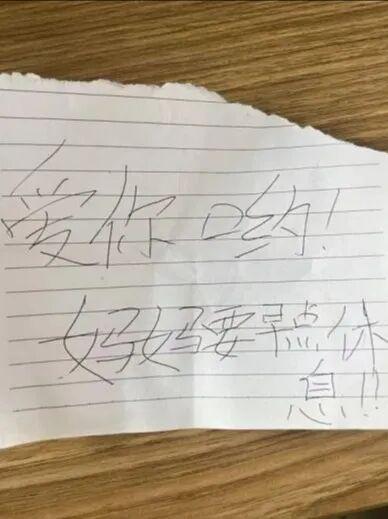 爱你哟!
妈妈要早点休
息!!